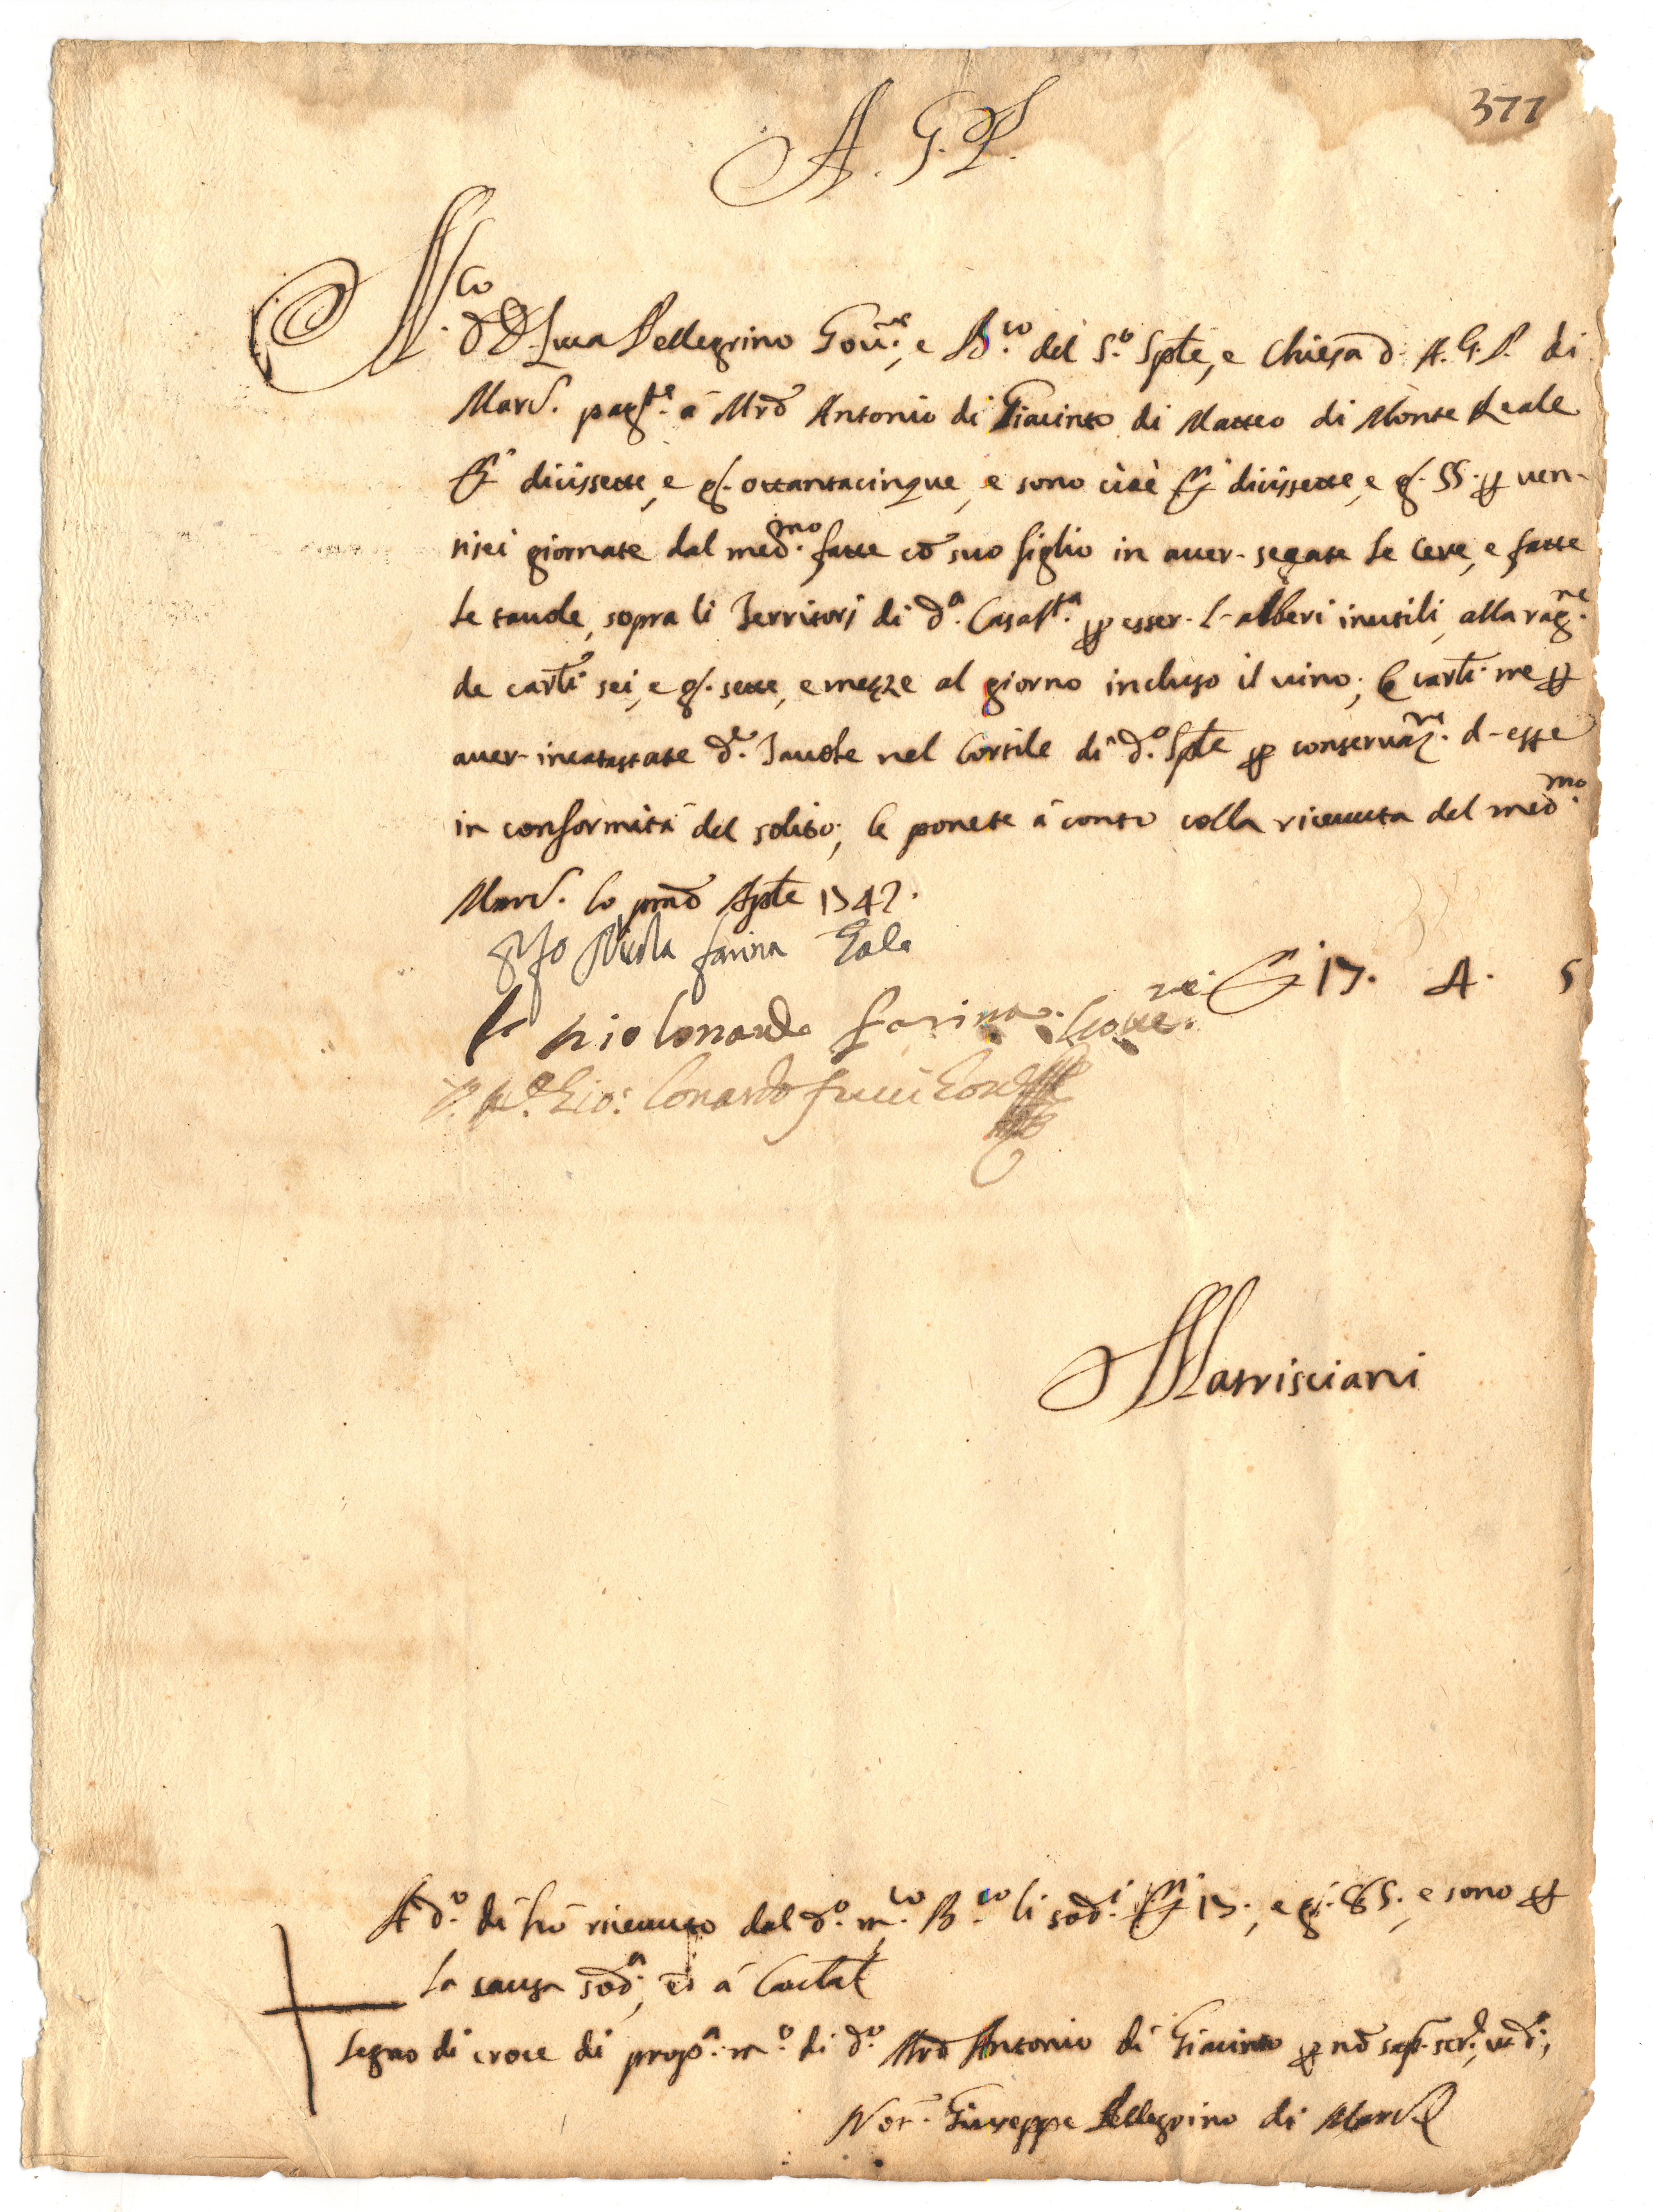 377
A. G. P.
M.co
D. D. Luca Pellegrino Gov.re, e B.co del S.o Sple, e Chiesa d. A. G. P. di
Marc. pag.te à Mrõ Antonio di Giacinto di Matteo di Monte Reale
D.i dicissette, e g. ottantacinque, e sono cioè D.i dicissette, e g. 55. p ven-
tisei giornate dal med.mo fatte cõ suo figlio in aver- segate le Cerse, e fatte
le tavole, sopra li Territorj di d.a Casa S.ta p esser- l-alberi inutili, alla rag.ne
de carli sei, e g. sette, e mezze al giorno incluso il vino; e carli tre p
aver- incatastate d.e Tavole nel Cortile di d.o Sple p conservaz.ne d-esse
in conformità del solito; le ponete à conto colla ricevuta del med.mo
Marc. lo pmõ Aple 1742.
Io Nicola farina
D.i 17. 4. 5
Gio lonardo farina Gove.re
Gio: lonardo
Matrisciani
A d.o dì hò ricevuto dal d.o m.co B.co li sod.i D.i 17., e g. 85., e sono p
la causa sod.a, ed à Caut.
Segno di croce di prop.a m.o di d.o Mrõ Antonio di Giacinto p nõ sap. scr.
Not. Giuseppe Pellegrino di Marc.